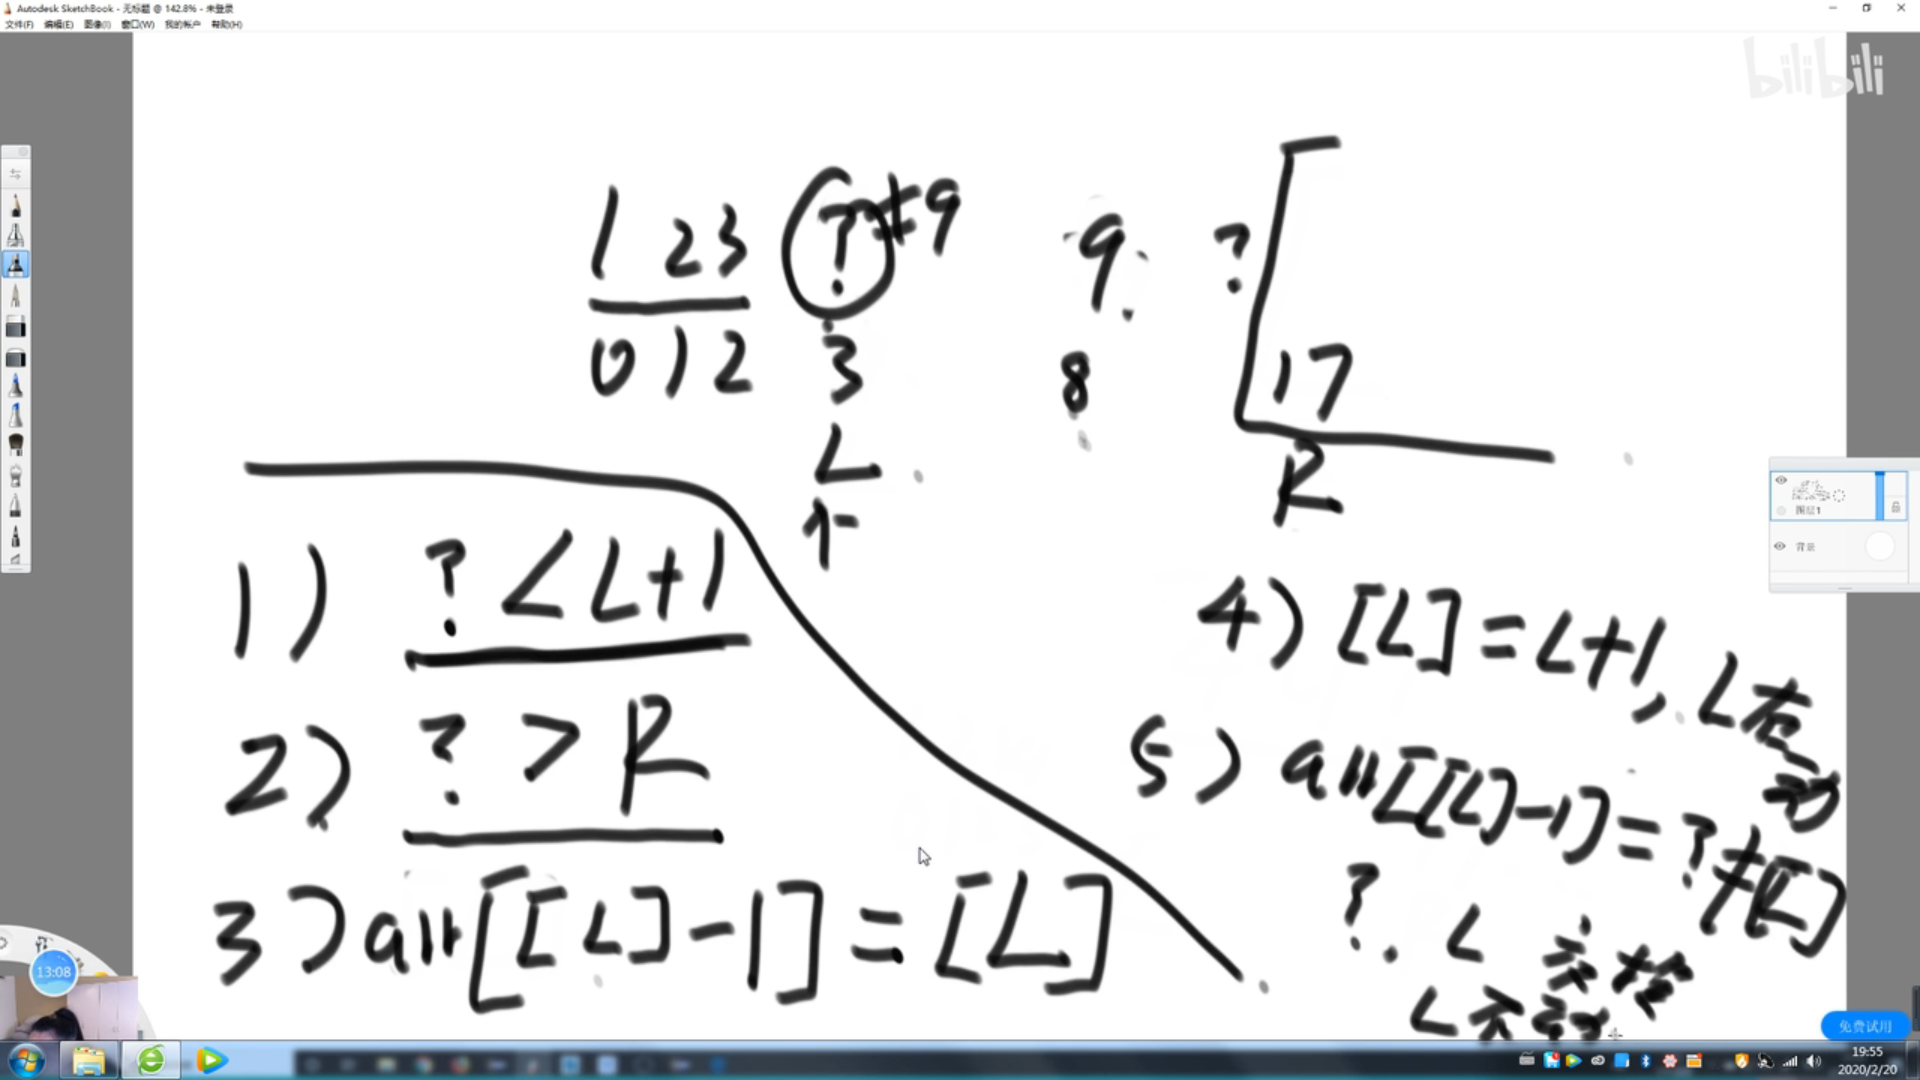 Autodesk SketchBook - 无标题 @ 142.8% - 未登录
文件(F) 编辑(E) 图像(I) 窗口(W) 我的帐户 帮助(H)
bilibili
1 2 3 ? ≠9 9 ?
0 1 2 3 8 17
L R
图层1
背景
1) ? < L+1
2) ? > R
3) arr[[L]-1] = [L]
4) [L] = L+1, L右动
5) arr[[L]-1] = ? ≠[L]
? L 交换
L不动
13:08
免费试用
19:55
2020/2/20